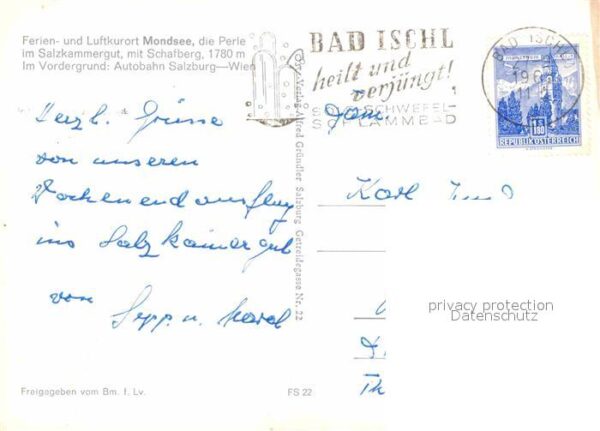 Ferien- und Luftkurort Mondsee, die Perle
im Salzkammergut, mit Schafberg, 1780 m
Im Vordergrund: Autobahn Salzburg—Wien
BAD ISCHL
heilt und
verjüngt!
SOLE-SCHWEFEL-
SCHLAMMBAD
BAD ISCHL
19.6
11
1.80
REPUBLIK ÖSTERREICH
Herzl. Grüsse
von unseren
Wochenendausflug
ins Salzkammergut
von
Sepp u.
Fam.
Karl
Verlag Alfred Gründler Salzburg Getreidegasse Nr. 22
privacy protection
Datenschutz
Freigegeben vom Bm. f. Lv.
FS 22